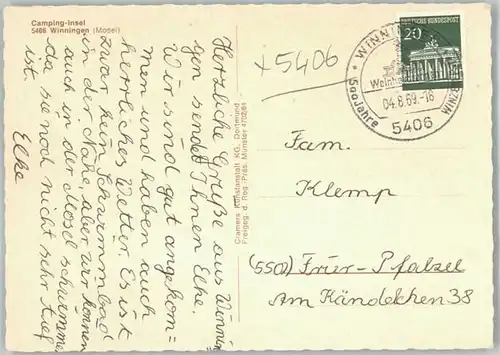 Camping-Insel
5406 Winningen (Mosel)
Herzliche Grüße aus Winnin=
gen sendet Ihnen Elke.
Wir sind gut angekom=
men und haben auch
herrliches Wetter. Es ist
zwar kein Schwimmbad
in der Nähe, aber wir können
auch in der Mosel schwimmen
da sie noch nicht sehr tief
ist.
Elke
Cramers Kunstanstalt KG, Dortmund
Freigeg. d. Reg.-Präs. Münster
+5406
20
DEUTSCHE BUNDESPOST
WINNIN
Weinh
04.8.69.-16
500 Jahre
WINZE
5406
Fam.
Klemp
(5502) Trier-Pfalzel
Am Kändelchen 38